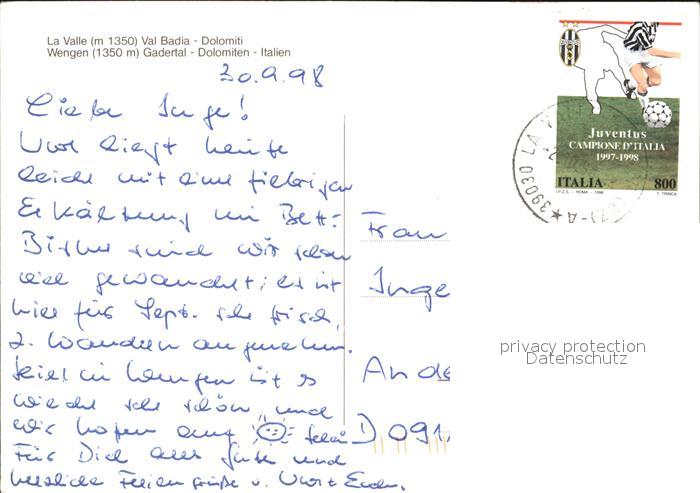 La Valle (m 1350) Val Badia - Dolomiti
Wengen (1350 m) Gadertal - Dolomiten - Italien
30.9.98
Liebe Inge!
liegt heute
leider mit einer fiebrigen
Erkältung im Bett.
Bisher sind wir schon
viel gewandert; es ist
hier für Sept. sehr frisch,
z. Wandern angenehm.
hier in Wengen ist es
wieder sehr schön, und
wir hoffen auf
Für Dich alles Gute und
herzliche Feriengrüße v.
Frau
Inge
Ande
D 091
Juventus
CAMPIONE D'ITALIA
1997-1998
ITALIA 800
I.P.Z.S. - ROMA - 1998 T. TRINCA
39030 LA V
privacy protection
Datenschutz